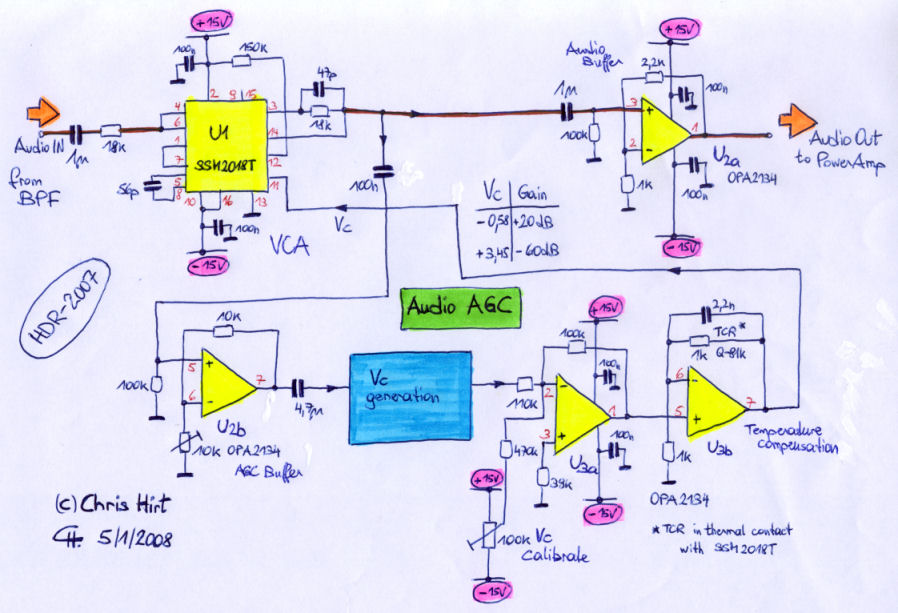 +15V
100n
150k
47p
2 9 15
4
6
1
7
5
8
3
14
12
11
10 16 13
U1
SSM2018T
18k
Audio IN
1µ
18k
from
BPF
56p
100n
-15V
VCA
100n
Vc
Vc Gain
-0,58 +20dB
+3,45 -60dB
Audio
Buffer
1µ
100k
+15V
2,2k
100n
3
2
1
1k
U2a
OPA2134
100n
-15V
Audio Out
to PowerAmp
HDR-2007
Audio AGC
10k
100k
5
6
7
U2b
10k OPA2134
AGC Buffer
4,7µ
Vc
generation
110k
100k
+15V
100n
2
3
1
U3a
100n
470k
39k
-15V
+15V
100k Vc
Calibrate
-15V
2,2n
TCR*
1k Q-81k
6
5
7
U3b
1k
Temperature
compensation
OPA2134
* TCR in thermal contact
with SSM2018T
(c) Chris Hirt
CH. 5/1/2008